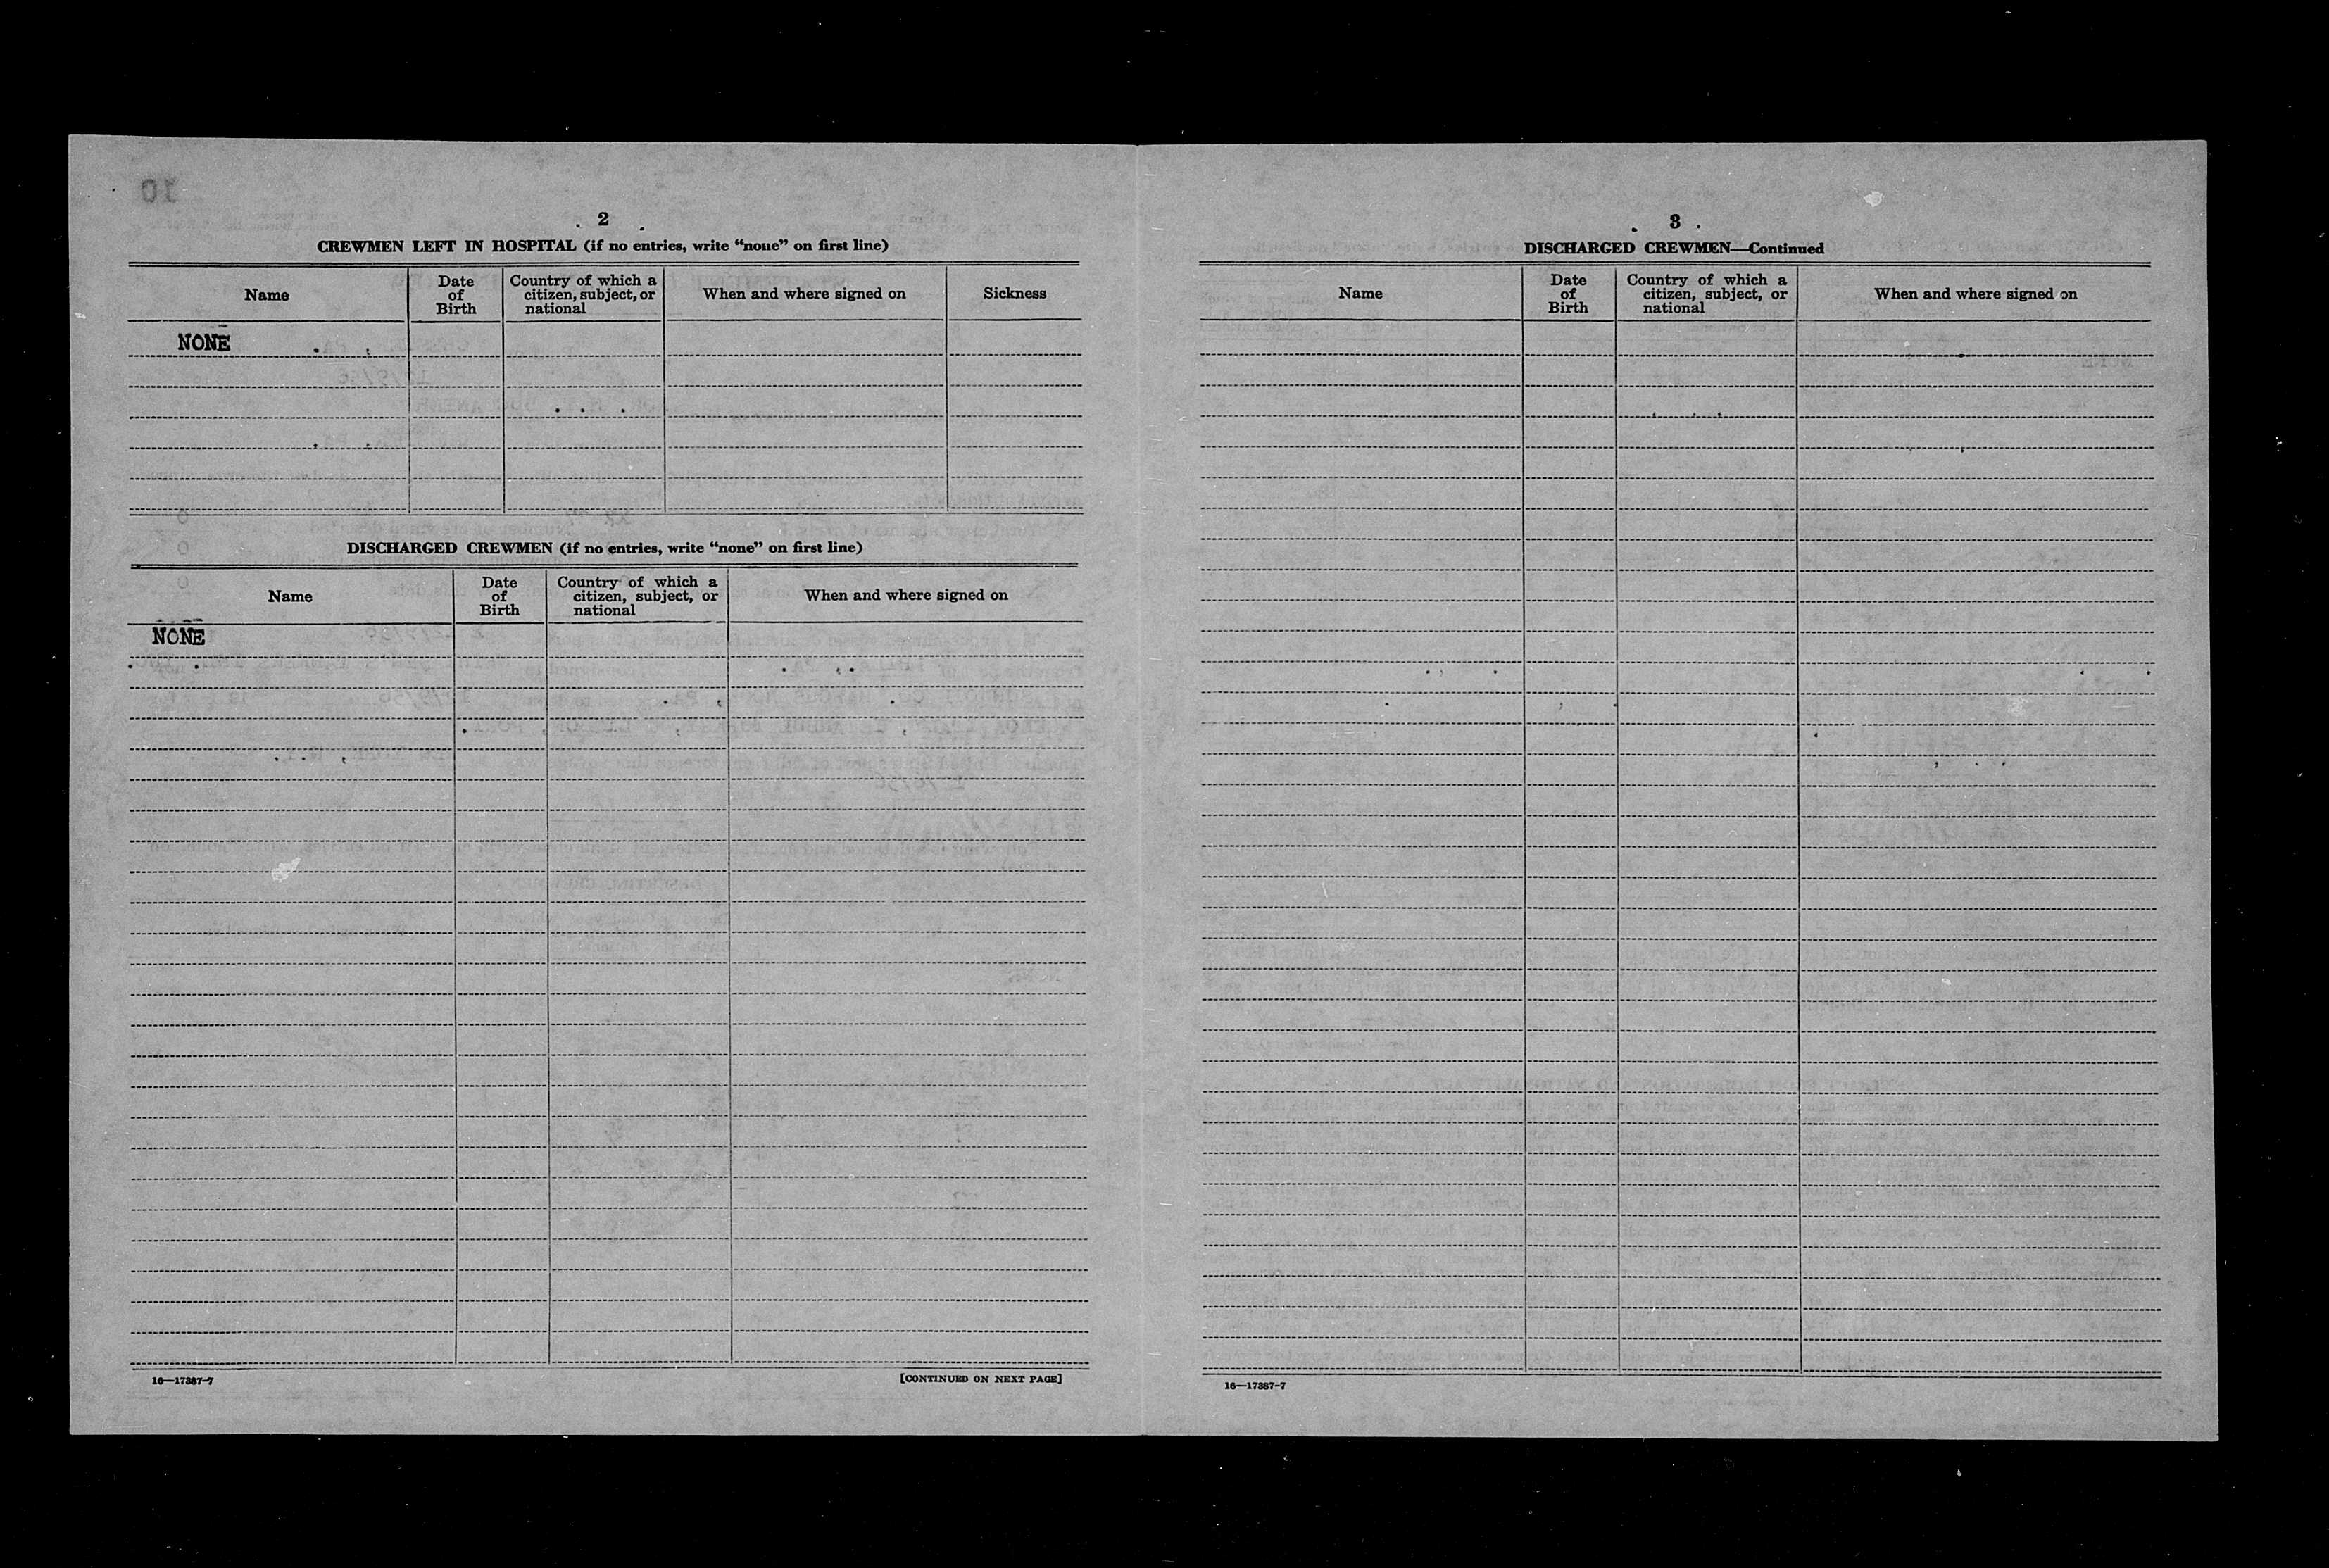 2
CREWMEN LEFT IN HOSPITAL (if no entries, write “none” on first line)
Name
Date of Birth
Country of which a citizen, subject, or national
When and where signed on
Sickness
NONE
DISCHARGED CREWMEN (if no entries, write “none” on first line)
Name
Date of Birth
Country of which a citizen, subject, or national
When and where signed on
NONE
16—17387-7
[CONTINUED ON NEXT PAGE]
3
DISCHARGED CREWMEN—Continued
Name
Date of Birth
Country of which a citizen, subject, or national
When and where signed on
16—17387-7